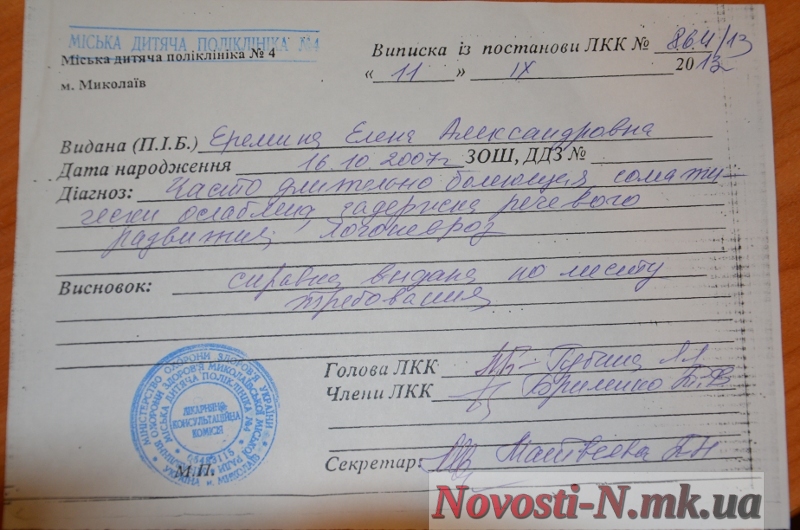 МІСЬКА ДИТЯЧА ПОЛІКЛІНІКА №4
Міська дитяча поліклініка № 4
м. Миколаїв
Виписка із постанови ЛКК №
« 11 » IX 2013
Видана (П.І.Б.) Еремина Елена Александровна
Дата народження 16.10.2007г ЗОШ, ДДЗ №
Діагноз: Часто длительно болеющая, сомати-
чески ослаблена, задержка речевого
развития, логоневроз
Висновок: справка выдана по месту
требования
Голова ЛКК
Члени ЛКК
Секретар: Матвеева
М.П.
МІНІСТЕРСТВО ОХОРОНИ ЗДОРОВ'Я УКРАЇНИ
МІСЬКА ДИТЯЧА ПОЛІКЛІНІКА №4
ЛІКАРНЯНА
КОНСУЛЬТАЦІЙНА
КОМІСІЯ
Novosti-N.mk.ua